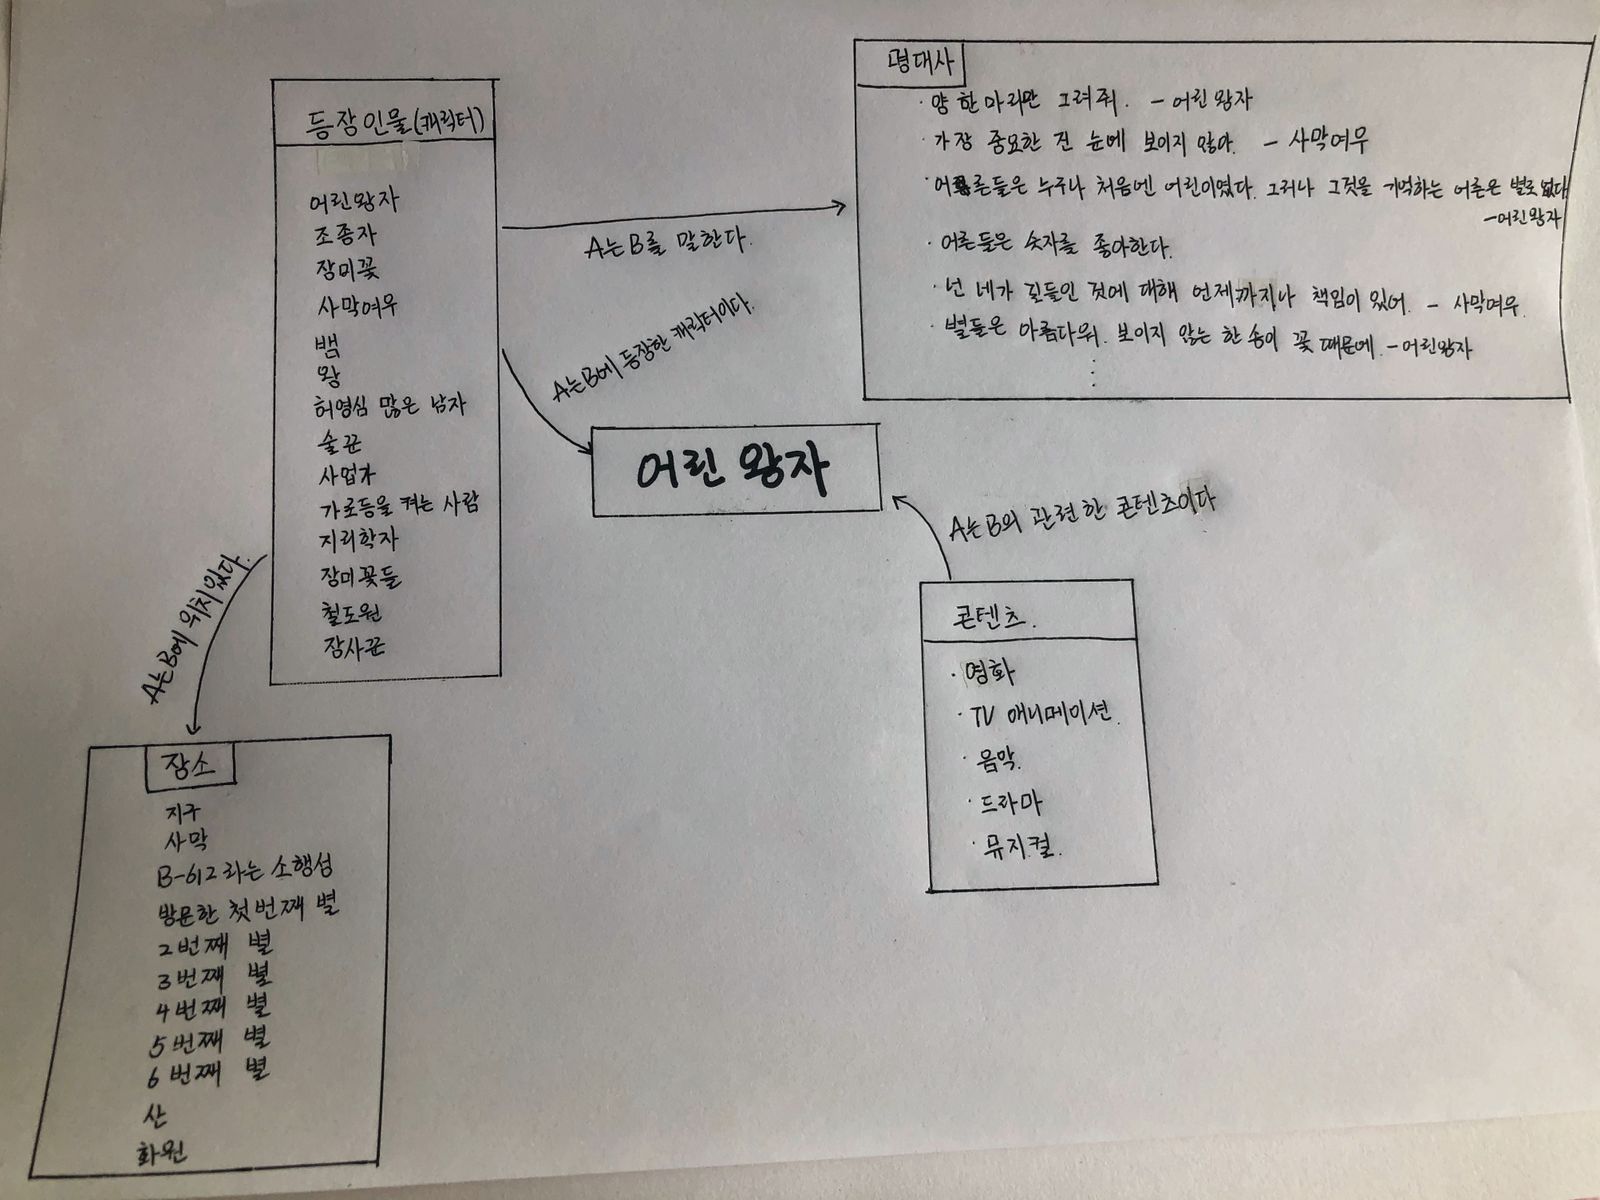 등장인물(캐릭터)
어린왕자
조종자
장미꽃
사막여우
뱀
왕
허영심 많은 남자
술꾼
사업가
가로등을 켜는 사람
지리학자
장미꽃들
철도원
장사꾼
A는B를 말한다.
A는B에 등장한 캐릭터이다.
A는B에 위치있다.
명대사
· 양 한마리만 그려줘. - 어린왕자
· 가장 중요한 건 눈에 보이지 않아. - 사막여우
· 어른들은 누구나 처음엔 어린이였다. 그러나 그것을 기억하는 어른은 별로 없다
-어린왕자
· 어른들은 숫자를 좋아한다.
· 넌 네가 길들인 것에 대해 언제까지나 책임이 있어. - 사막여우.
· 별들은 아름다워. 보이지 않는 한 송이 꽃 때문에. - 어린왕자
어린 왕자
A는B의 관련한 콘텐츠이다
콘텐츠.
· 영화
· TV 애니메이션.
· 음악.
· 드라마
· 뮤지컬.
장소
지구
사막
B-612라는 소행성
방문한 첫번째 별
2번째 별
3번째 별
4번째 별
5번째 별
6번째 별
산
화원